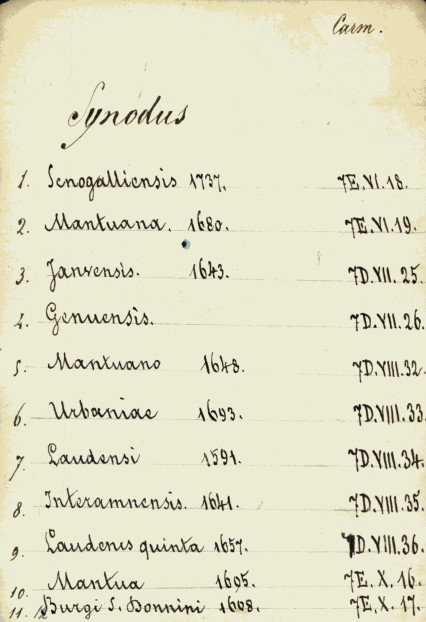 Carm.
Synodus
1. Senogalliensis 1737. 7E.VI.18.
2. Mantuana. 1680. 7E.VI.19.
3. Janvensis. 1643. 7D.VII.25.
4. Genuensis. 7D.VII.26.
5. Mantuano 1648. 7D.VIII.32.
6. Urbaniae 1693. 7D.VIII.33.
7. Laudensi 1591. 7D.VIII.34.
8. Interamnensis. 1641. 7D.VIII.35.
9. Laudenis quinta 1657. 7D.VIII.36.
10. Mantua 1605. 7E.X.16.
11. Burgi S. Donnini 1608. 7E.X.17.